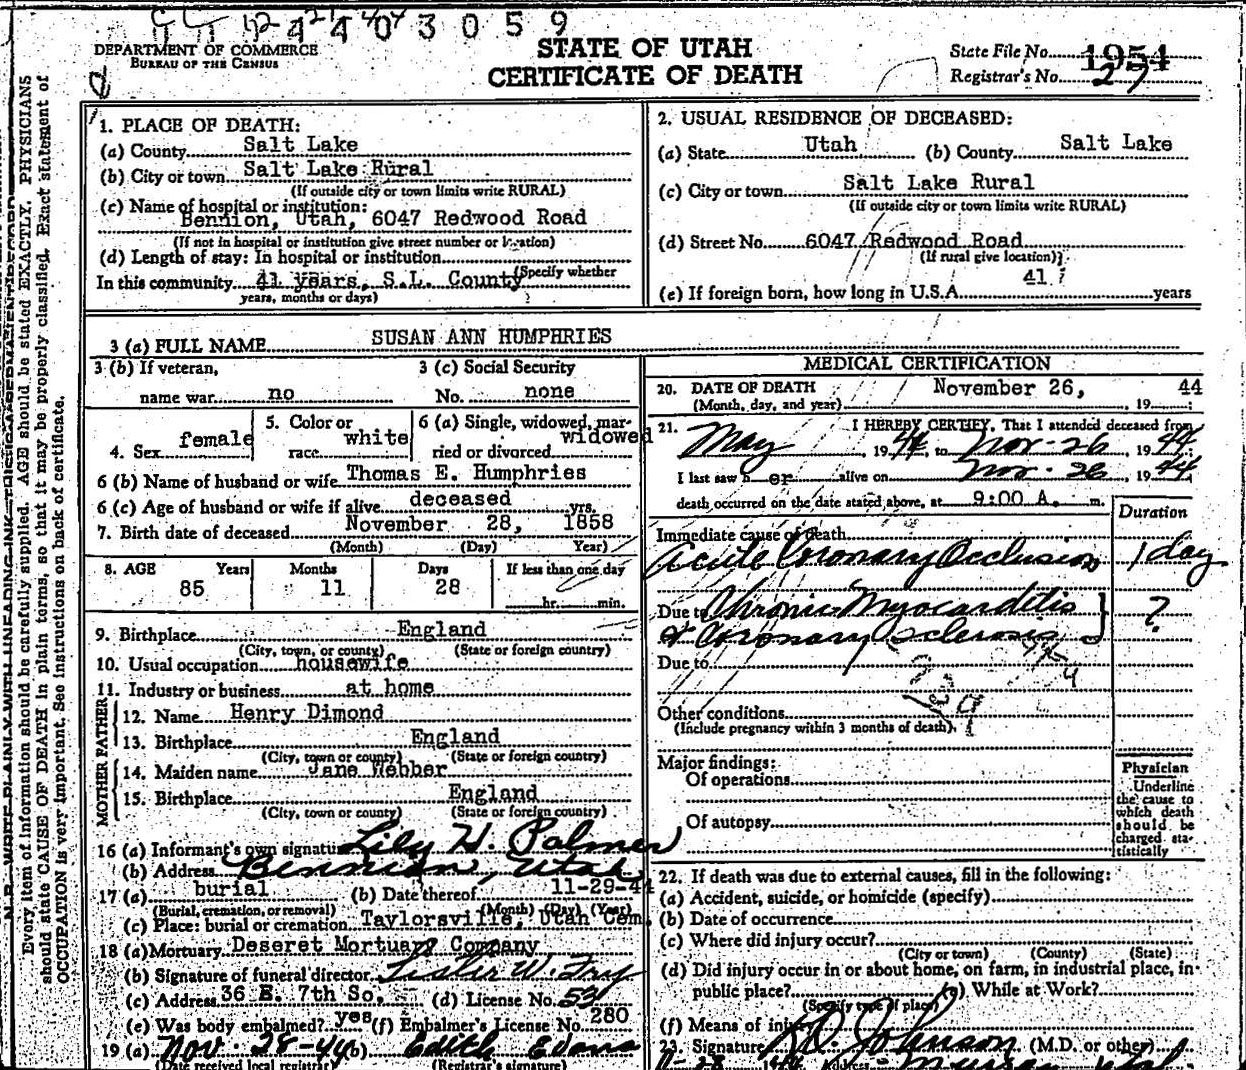 4 4 0 3 0 5 9
DEPARTMENT OF COMMERCE
BUREAU OF THE CENSUS
STATE OF UTAH
CERTIFICATE OF DEATH
State File No. 1954
Registrar's No. 27
N. B.—WRITE PLAINLY WITH UNFADING INK
Every item of information should be carefully supplied. AGE should be stated EXACTLY. PHYSICIANS
should state CAUSE OF DEATH in plain terms, so that it may be properly classified. Exact statement of
OCCUPATION is very important. See instructions on back of certificate.
1. PLACE OF DEATH:
(a) County Salt Lake
(b) City or town Salt Lake Rural
(If outside city or town limits write RURAL)
(c) Name of hospital or institution:
Bennion, Utah, 6047 Redwood Road
(If not in hospital or institution give street number or location)
(d) Length of stay: In hospital or institution
In this community 41 years, S.L. County (Specify whether
years, months or days)
2. USUAL RESIDENCE OF DECEASED:
(a) State Utah (b) County Salt Lake
(c) City or town Salt Lake Rural
(If outside city or town limits write RURAL)
(d) Street No. 6047 Redwood Road
(If rural give location)
(e) If foreign born, how long in U.S.A. 41 years
3 (a) FULL NAME SUSAN ANN HUMPHRIES
3 (b) If veteran,
name war no
3 (c) Social Security
No. none
4. Sex female
5. Color or
race white
6 (a) Single, widowed, mar-
ried or divorced widowed
6 (b) Name of husband or wife Thomas E. Humphries
6 (c) Age of husband or wife if alive deceased yrs.
7. Birth date of deceased November 28, 1858
(Month) (Day) Year)
8. AGE Years Months Days If less than one day
85 11 28 hr. min.
9. Birthplace England
(City, town, or county) (State or foreign country)
10. Usual occupation housewife
11. Industry or business at home
FATHER
12. Name Henry Dimond
13. Birthplace England
(City, town or county) (State or foreign country)
MOTHER
14. Maiden name Jane Webber
15. Birthplace England
(City, town or county) (State or foreign country)
16 (a) Informant's own signature Lily H. Palmer
(b) Address Bennion, Utah
17 (a) burial (b) Date thereof 11-29-44
(Burial, cremation, or removal) (Month) (Day) (Year)
(c) Place: burial or cremation Taylorsville, Utah Cem.
18 (a) Mortuary Deseret Mortuary Company
(b) Signature of funeral director Lister W. Fry
(c) Address 36 E. 7th So. (d) License No. 53
(e) Was body embalmed? yes (f) Embalmer's License No. 280
19 (a) Nov. 28-44 (b) Edith Evans
(Date received local registrar) (Registrar's signature)
MEDICAL CERTIFICATION
20. DATE OF DEATH November 26, 1944
(Month, day, and year)
21. I HEREBY CERTIFY, That I attended deceased from
May, 1944, to Nov-26, 1944
I last saw her alive on Nov. 26, 1944
death occurred on the date stated above, at 9:00 A. m.
Duration
Immediate cause of death
Acute Coronary Occlusion 1 day
Due to Chronic Myocarditis
& Coronary Sclerosis ?
Due to
Other conditions
(Include pregnancy within 3 months of death)
Major findings:
Of operations
Of autopsy
Physician
Underline
the cause to
which death
should be
charged sta-
tistically
22. If death was due to external causes, fill in the following:
(a) Accident, suicide, or homicide (specify)
(b) Date of occurrence
(c) Where did injury occur?
(City or town) (County) (State)
(d) Did injury occur in or about home, on farm, in industrial place, in
public place? (e) While at Work?
(Specify type of place)
(f) Means of injury
23. Signature Johnson (M.D. or other)
Murray Utah